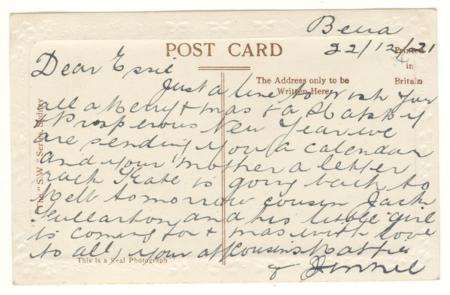 Bena
22/12/21
POST CARD
Printed
in
Britain
The Address only to be
Written Here.
Dear Essie
Just a line to wish you
all a Merry Xmas & a Happy
& Prosperous New Year we
are sending you a calendar
and your mother a letter
each Kate is going back to
Melb tomorrow cousin Jack
Fullarton and his little girl
is coming for Xmas with love
to all, your aff cousins Mattie
& Jinnie
The "S.W" Series
This is a Real Photograph